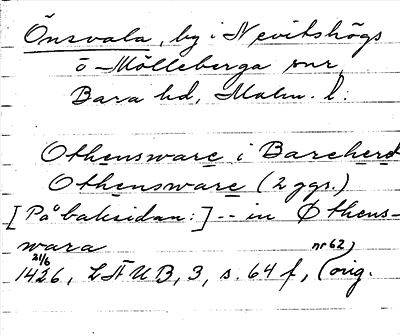 Önsvala, by i Nevitshögs
o Mölleberga snr,
Bara hd, Malm. l.
Othensware i Bareherd
Othensware (2 ggr.)
[På baksidan:] -- in Øthens-
wara
21/6 1426, LÄUB, 3, s. 64 f, (orig. nr 62)